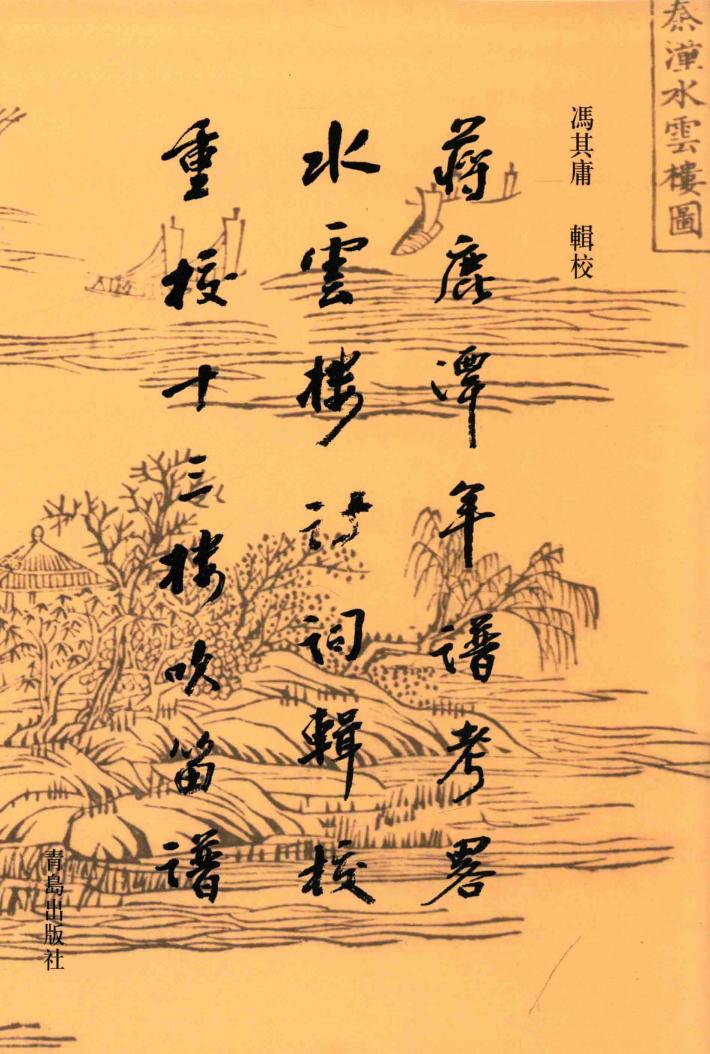 秦潼水雲樓圖
馮其庸 輯校
蔣鹿潭年譜考畧
水雲樓詩詞輯校
重校十三樓吹笛譜
青島出版社